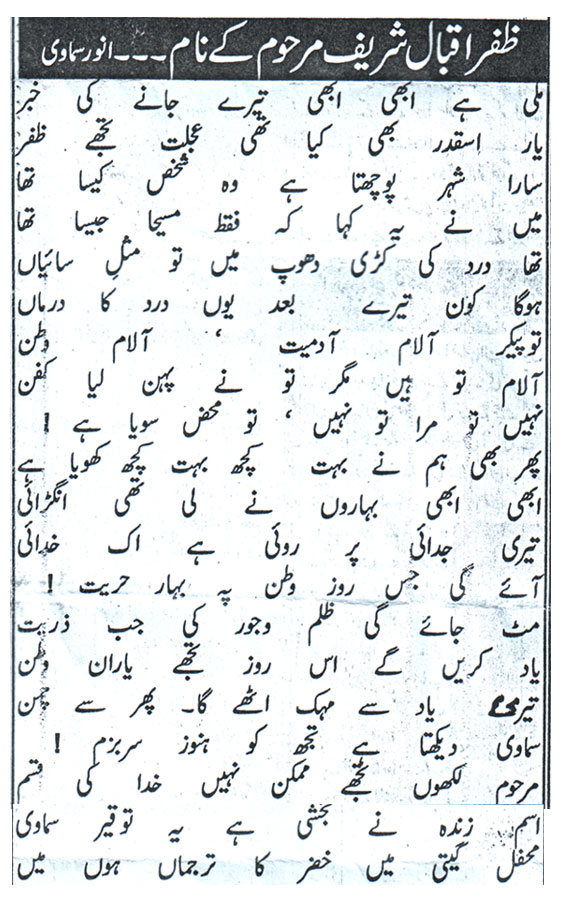 ظفر اقبال شریف مرحوم کے نام ۔۔۔ انور سماوی
ملی ہے ابھی ابھی تیرے جانے کی خبر
یار اسقدر بھی کیا تھی عجلت تجھے ظفر
سارا شہر پوچھتا ہے وہ شخص کیسا تھا
میں نے یہ کہا کہ فقط مسیحا جیسا تھا
تھا درد کی کڑی دھوپ میں تو مثلِ سائیاں
ہوگا کون تیرے بعد یوں درد کا درماں
تو پیکر آلام آدمیت ‘ آلام وطن
آلام تو ہیں مگر تو نے پہن لیا کفن
نہیں تو مرا تو نہیں ‘ تو محض سویا ہے !
پھر بھی ہم نے بہت کچھ بہت کچھ کھویا ہے
ابھی ابھی بہاروں نے لی تھی انگڑائی
تیری جدائی پر روئی ہے اک خدائی
آئے گی جس روز وطن پہ بہار حریت !
مٹ جائے گی ظلم وجور کی جب ذریت
یاد کریں گے اس روز تجھے یاران وطن
تیری یاد سے مہک اٹھے گا۔ پھر سے چمن
سماوی دیکھتا ہے تجھ کو ہنوز سربزم !
مرحوم لکھوں تجھے ممکن نہیں خدا کی قسم
اسم زندہ نے بخشی ہے یہ توقیر سماوی
محفل گیتی میں خضر کا ترجماں ہوں میں